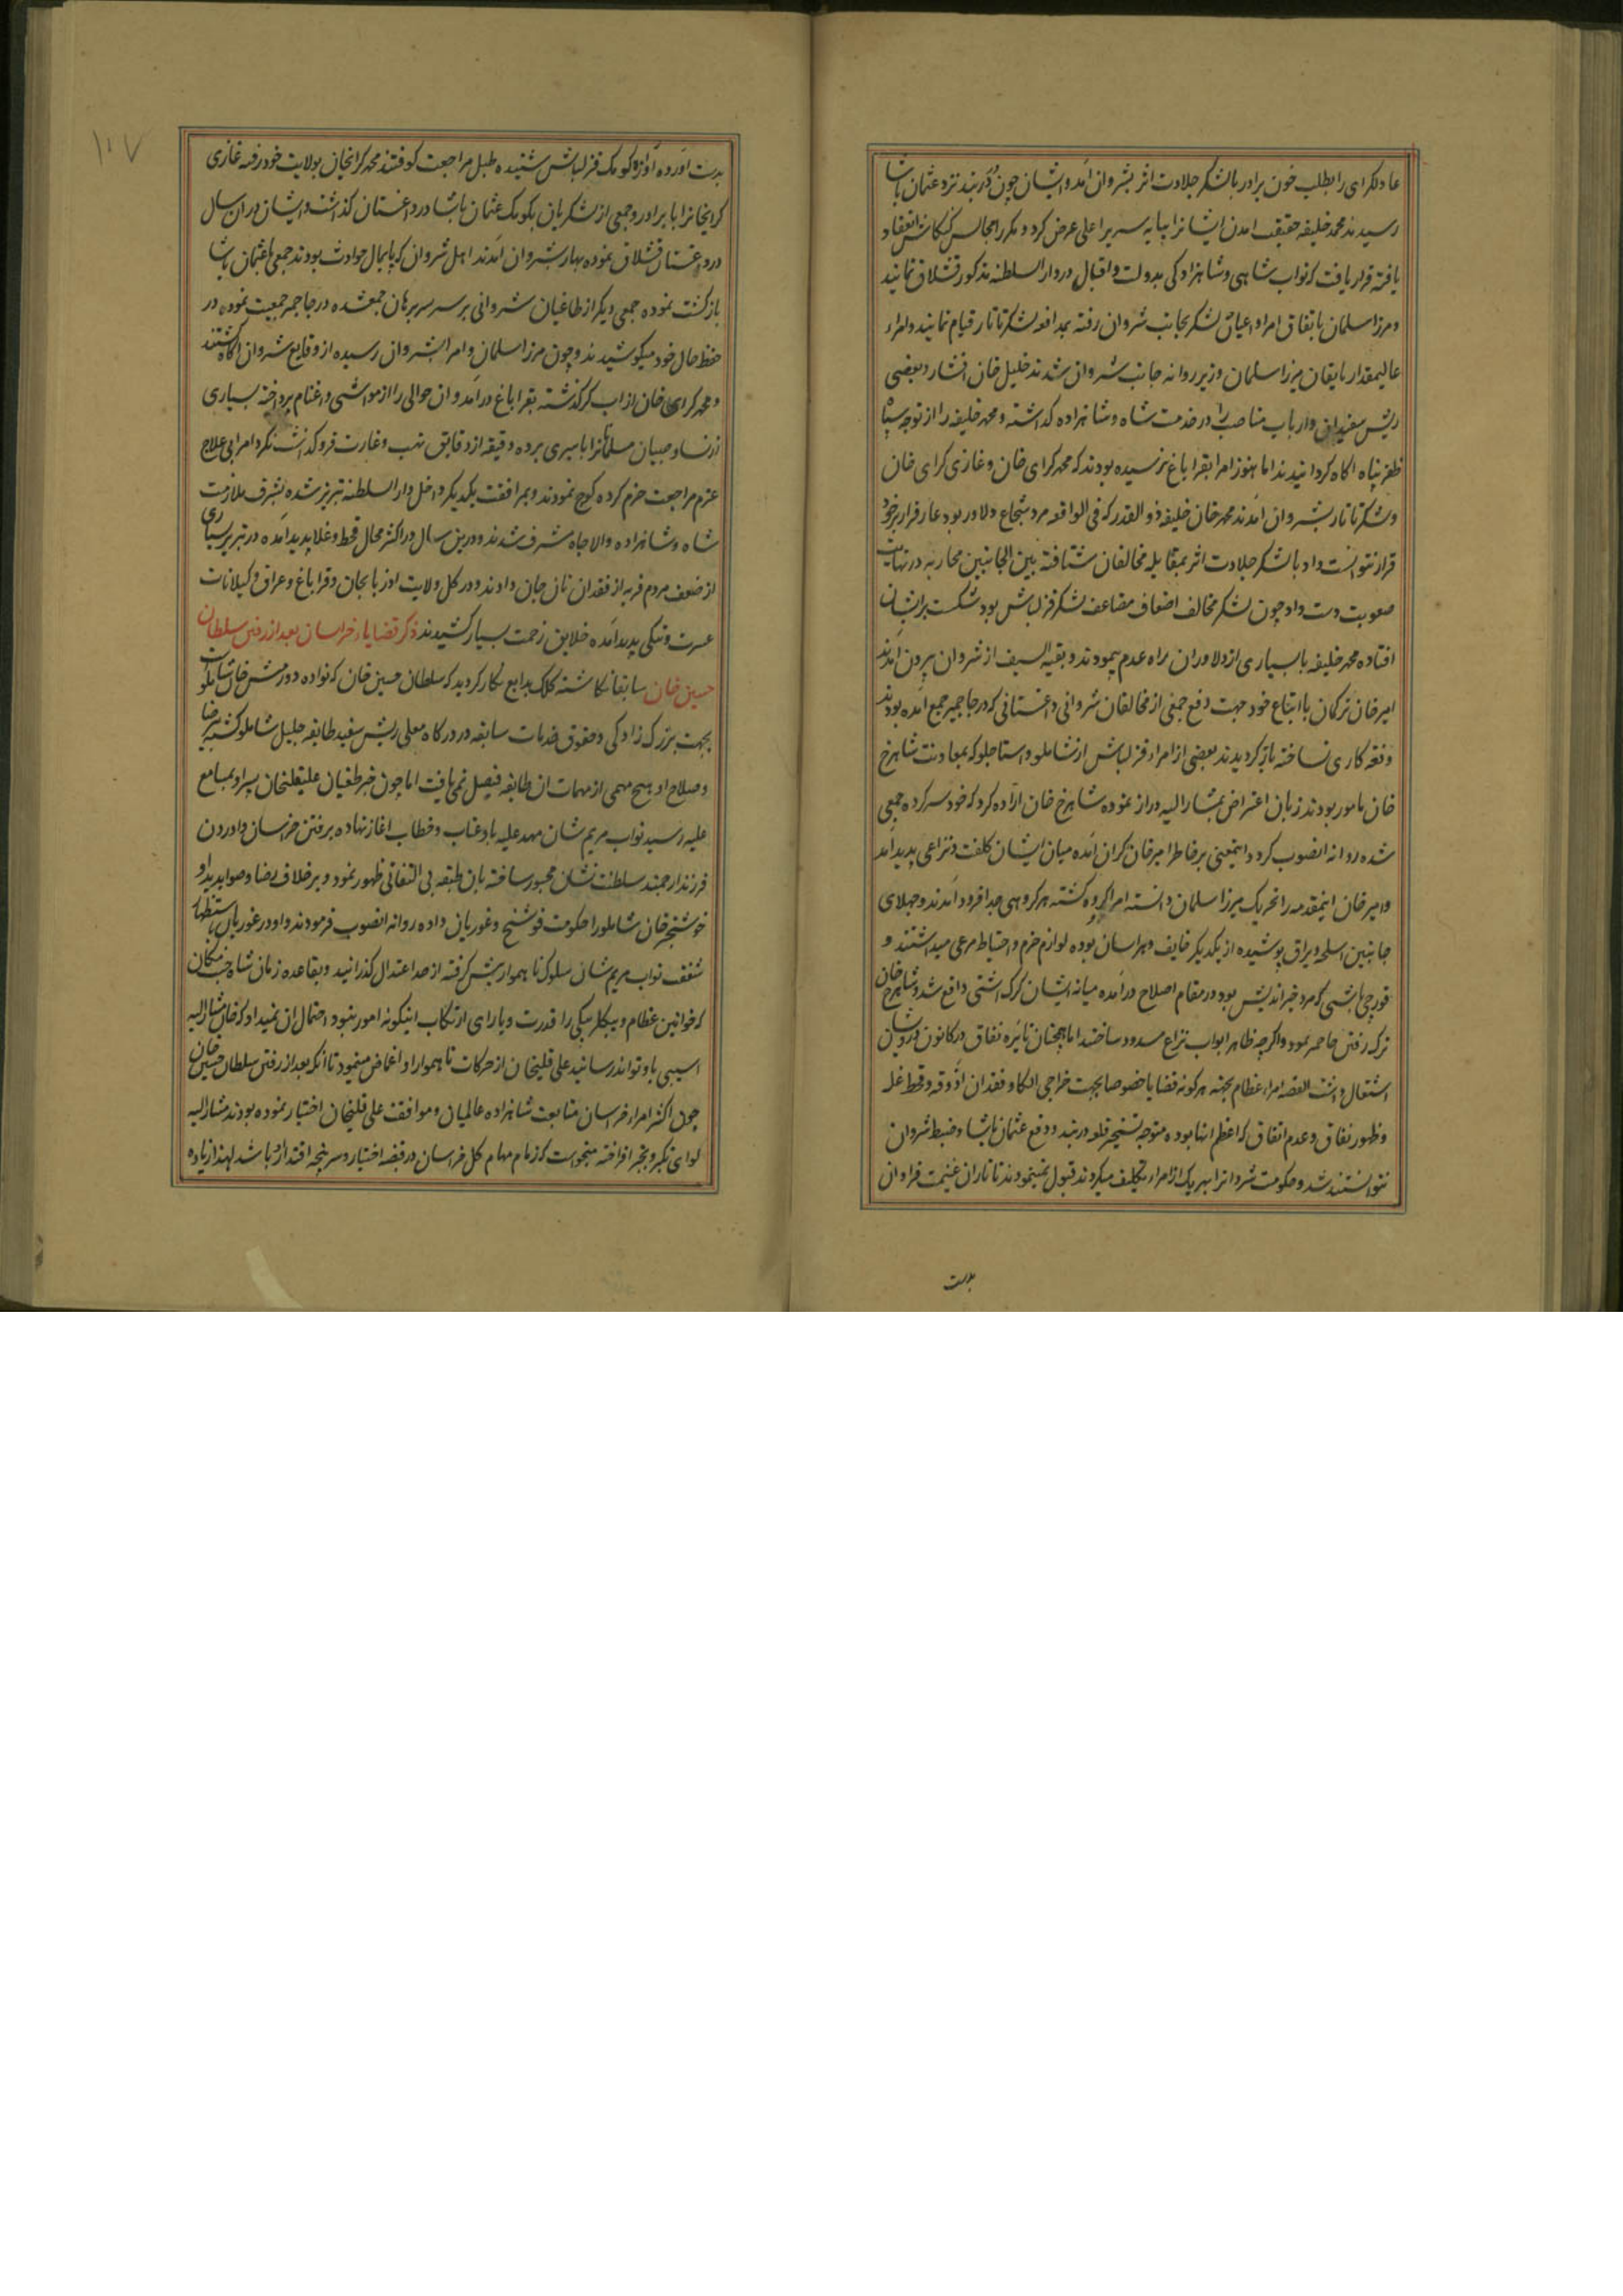 عادلکرای را بطلب خون برادر با لشکر جلادت اثر بشروان آمد و ایشان چون دربند نزد عثمان پاشا
رسیدند محمد خلیفه حقیقت امدن ایشانرا بپایه سریر اعلی عرض کرد و مکرر مجالس کنکاش انعقاد
یافته قرار یافت که نواب شاهی و شاهزادکی بدولت و اقبال در دار السلطنه مذکور قشلاق نمایند
و مرزا سلمان باتفاق امرا و اعیان لشکر بجانب شروان رفته بمدافعه لشکر تاتار قیام نمایند و امراء
عالیمقدار باتفان میرزا سلمان وزیر روانه جانب شروان شدند خلیل خان افشار و بعضی
ریش سفیدان و ارباب مناصب را در خدمت شاه و شاهزاده کذاشته و محمد خلیفه را از توجه سپاه
ظفر پناه اکاه کردانیدند اما هنوز امرا بقراباغ نرسیده بودند که محمد کرای خان و غازی کرای خان
و لشکر تاتار بشروان آمدند محمد خان خلیفه ذو القدر که فی الواقعه مرد شجاع و دلاور بود عار فرار بر خود
قرار نتوانست داد با لشکر جلادت اثر بمقابله مخالفان شتافته بین الجانبین محاربه در نهایت
صعوبت دست داد چون لشکر مخالف اضعاف مضاعف لشکر قزلباش بود شکست بر ایشان
افتاده محمد خلیفه با بسیاری از دلاوران براه عدم پیمودند و بقیه السیف از شروان بیرون آمدند
امیر خان ترکمان با اتباع خود جهت دفع جمعی از مخالفان شروانی و داغستانی که در جا جمع آمده بودند
دفعه کاری نساخته باز کردیدند بعضی از امراء قزلباش از شاملو و استاجلو که بمعاونت شاهرخ
خان مامور بودند زبان اعتراض بمشار الیه دراز نموده شاهرخ خان اراده کرد که خود سر کرده جمعی
شده روانه انصوب کردد اینمعنی بر خاطر امیر خان کران آمده میان ایشان کلفت و نزاعی پدید آمد
و امیر خان اینمقدمه را تحریک میرزا سلمان دانسته امرا دو کروه کشته هر کروهی جدا فرود آمدند و جهلای
جانبین اسلحه و یراق پوشیده از یکدیکر خایف و هراسان بوده لوازم حزم و احتیاط مرعی میداشتند و
قورچی باشی که مرد خیر اندیش بود در مقام اصلاح درآمده میانه ایشان کرک اشتی واقع شد و شاهرخ خان
ترک رفتن جا نمود و اکرچه ظاهر ابواب نزاع مسدود ساختند اما همچنان نایره نفاق در کانون درون ایشان
اشتعال داشت القصه امراء عظام بجهته هر کونه قضایا خصوصا بجهت خرابی الکا و فقدان آذوقه و قحط غله
و ظهور نفاق و عدم اتفاق که اعظم انها بوده متوجه تسخیر قلعه دربند و دفع عثمان پاشا و ضبط شروان
نتوانستند شد و حکومت شروانرا بهر یک از امراء تکلیف میکردند قبول نمینمودند تا تاران غنیمت فراوان
بدست
۱۰۷
بدست آورده آوازه کومک قزلباش شنیده طبل مراجعت کوفتند محمد کرایخان بولایت خود رفته غازی
کرایخانرا با برادر و جمعی از لشکریان بکومک عثمان پاشا در داغستان کذاشت و ایشان در ان سال
در داغستان قشلاق نموده بهار بشروان آمدند اهل شروان که پایمال حوادث بودند جمعی باعثمان پاشا
بازکشت نموده جمعی دیکر از طاغیان شروانی بر سر برهان جمعشده در جا جمعیت نموده در
حفظ حال خود میکوشیدند و چون مرزا سلمان و امرا بشروان رسیده از وقایع شروان اکاه کشتند
و محمد کرای خان از اب کر کذشته بقراباغ درآمد و ان حوالی را از مواشی و اغنام پرداخته بسیاری
از نساء و صبیان مسلمانانرا باسیری برده دقیقه از دقایق نهب و غارت فرو کذاشت نکرد امرا بی علاج
عزم مراجعت جزم کرده کوچ نمودند و بمرافقت یکدیکر داخل دار السلطنه تبریز شده بشرف ملازمت
شاه و شاهزاده والا جاه مشرف شدند و درین سال در اکثر محال قحط و غلا پدید آمده در تبریز بسیاری
از ضعف مردم قریه از فقدان نان جان دادند و در کل ولایت اذربایجان و قراباغ و عراق و کیلانات
عسرت و تنکی پدید آمده خلایق زحمت بسیار کشیدند ذکر قضایاء خراسان بعد از رفتن سلطان
حسین خان سابقا نکاشته کلک بدایع نکار کردید که سلطان حسین خان که نواده دورمش خان شاملو
بجهت بزرک زادکی و حقوق خدمات سابقه در درکاه معلی ریش سفید طایفه جلیل شاملو کشته بی رضا
و صلاح او هیچ مهمی از مهمات ان طایفه فیصل نمی یافت اما چون خبر طغیان علیقلیخان پسر او بمسامع
علیه رسید نواب مریم شان مهد علیه باو عتاب و خطاب اغاز نهاده برفتن خراسان و اوردن
فرزند ارجمند سلطنت نشان مجبور ساخته بان طبقه بی التفاتی ظهور نمود و بر خلاف رضا و صوابدید او
خوشخبر خان شاملو را حکومت فوشنج و غوریان داده روانه انصوب فرمودند و او در غوریان باستظهار
شفقت نواب مریم شان سلوک ناهموار پیش کرفته از حد اعتدال کذرانید و بقاعده زمان شاه جنت مکان
که خوانین عظام و بیکلربیکی را قدرت و یارای ارتکاب اینکونه امور نبود احتمال ان نمیداد که خان مشار الیه
اسیبی باو تواند رسانید علی قلیخان از حرکات ناهموار او اغماض مینمود تا آنکه بعد از رفتن سلطان حسین خان
چون اکثر امراء خراسان متابعت شاهزاده عالمیان و موافقت علی قلیخان اختیار نموده بودند مشار الیه
لوای تکبر و تجبر افراخته میخواست که زمام مهام کل خراسان در قبضه اختیار و سرپنجه اقتدار او باشد لهذا زیاده